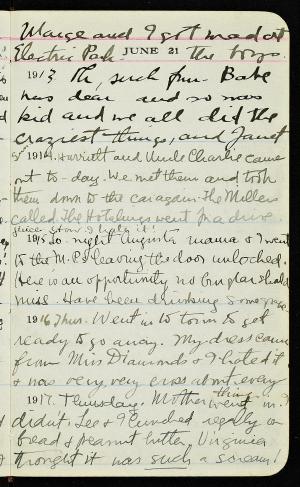 Marge and I got mad at
Electric Park. JUNE 21 the boys.
1913 Oh, such fun. Babe
was dear and so was
kid and we all did the
craziest things, and Janet
1914. Harriett and Uncle Charlie came
out to-day. We met them and took
them down to the car again. The Millers
called. The Hotalings went for a drive.
juice. How I hate it!
1915 To-night Augusta, mama & I went
to the M.P.s leaving the door unlocked.
Here is an opportunity no burglar should
miss. Have been drinking some grape
1916 Thurs. Went in to town to get
ready to go away. My dress came
from Miss Diamonds & I hated it
& was very, very cross about every
thing.
1917. Thursday. Mother went in. I
didn't. Lee & I lunched regally on
bread & peanut butter. Virginia
thought it was such a scream!